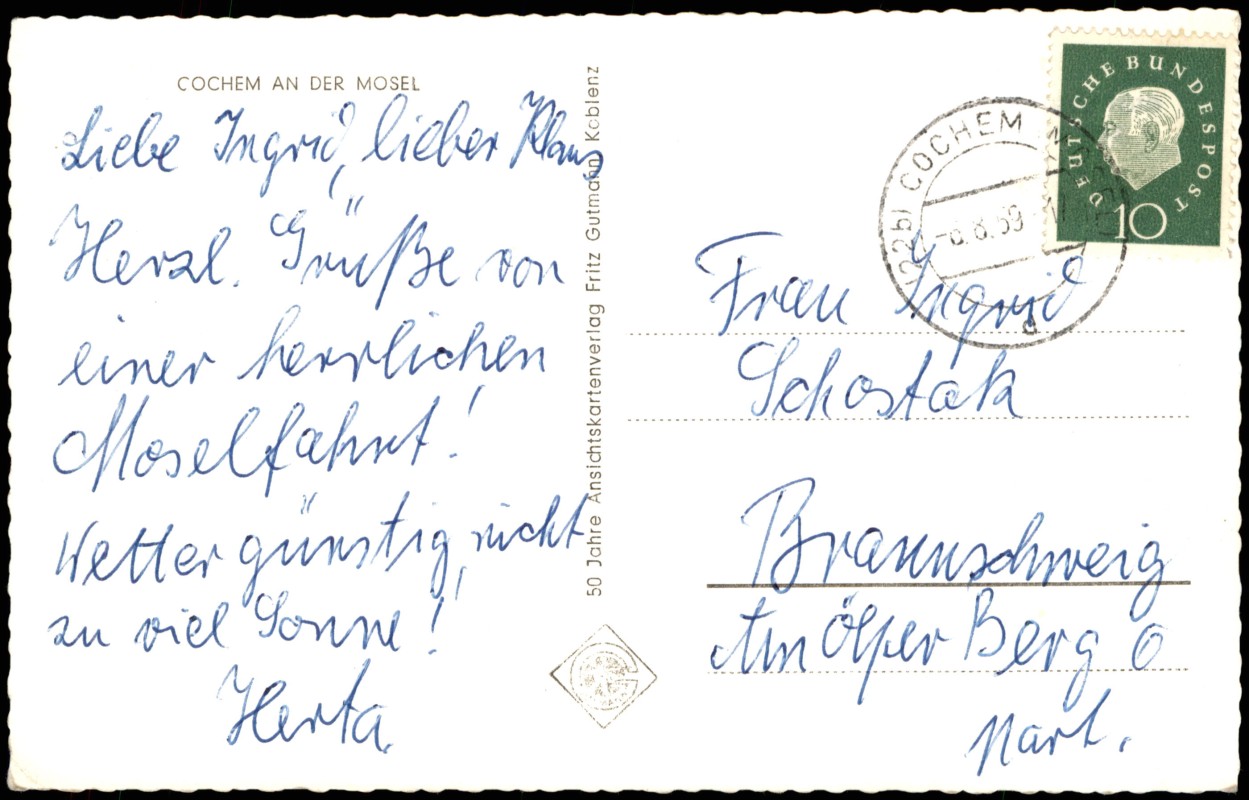 COCHEM AN DER MOSEL
Liebe Ingrid, lieber Klaus
Herzl. Grüße von
einer herrlichen
Moselfahrt!
Wetter günstig, nicht
zu viel Sonne!
Herta.
50 Jahre Ansichtskartenverlag Fritz Gutmann Koblenz
DEUTSCHE BUNDESPOST
10
(22b) COCHEM
-8.8.59
d
Frau Ingrid
Schostak
Braunschweig
Am Ölper Berg 6